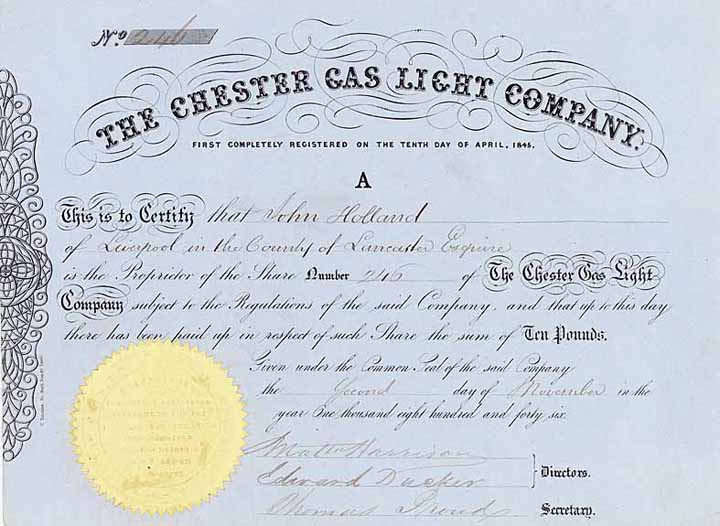 No. 246
THE CHESTER GAS LIGHT COMPANY.
FIRST COMPLETELY REGISTERED ON THE TENTH DAY OF APRIL, 1845.
A
This is to Certify that John Holland
of Liverpool in the County of Lancaster Esquire
is the Proprietor of the Share Number 246 of The Chester Gas Light
Company subject to the Regulations of the said Company, and that up to this day
there has been paid up in respect of such Share the sum of Ten Pounds.
Given under the Common Seal of the said Company
the Second day of November in the
year One thousand eight hundred and forty six
Harrison
Edward Ducker
Directors.
Thomas
Secretary.